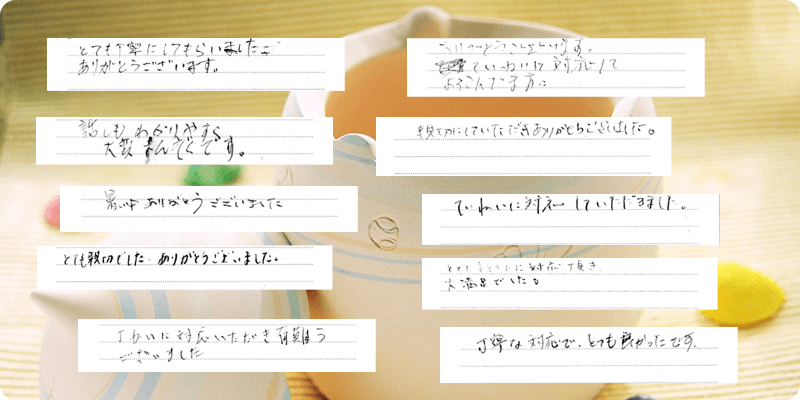 とても丁寧にしてもらいました。
ありがとうございます。
話しもわかりやすく
大変まんぞくです。
暑い中ありがとうございました
とても親切でした。ありがとうございました。
丁ねいに対応いただき有難う
ございました
ありがとうございます。
ていねいに対応して
親切にしていただきありがとうございました。
ていねいに対応していただきました。
とても 対応頂き
大満足でした。
丁寧な対応で、とても良かったです。